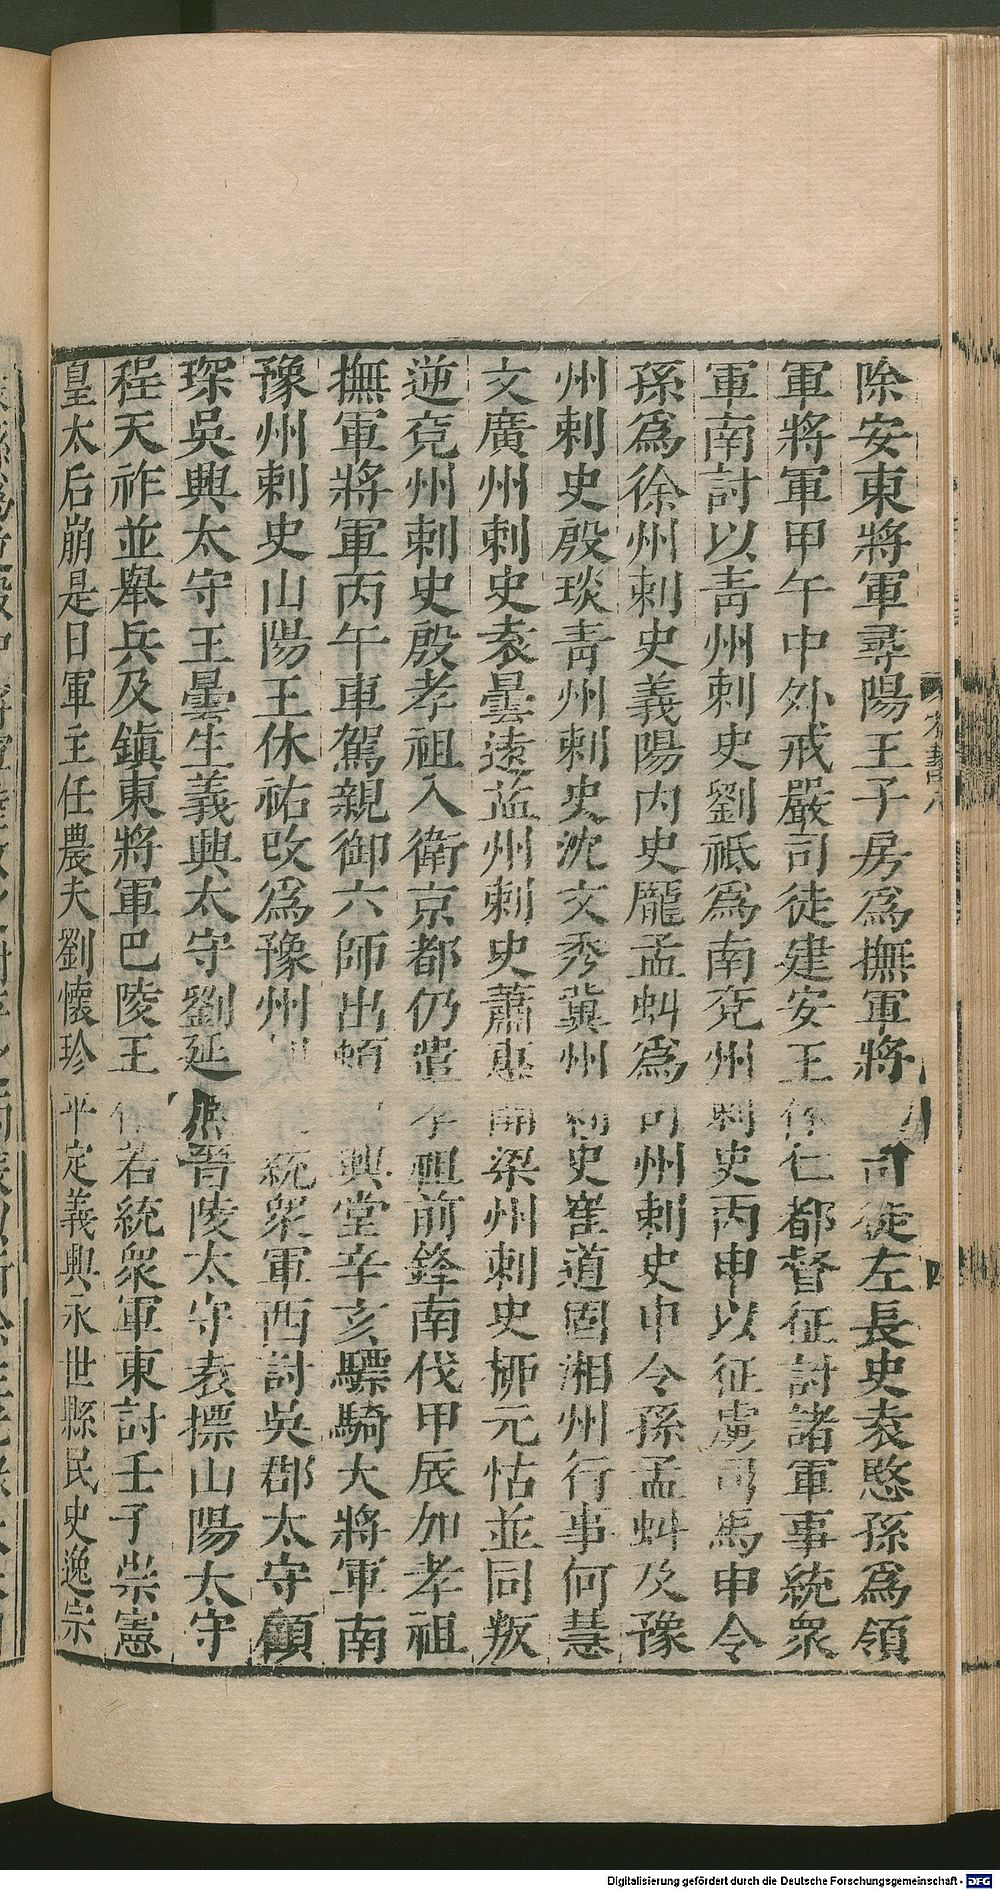 除安東將軍尋陽王子房爲撫軍將 司徒左長史袁愍孫爲領
軍將軍甲午中外戒嚴司徒建安王休仁都督征討諸軍事統衆
軍南討以青州刺史劉祗爲南兗州刺史丙申以征虜司馬申令
孫爲徐州刺史義陽内史龐孟虯爲司州刺史申令孫孟虯及豫
州刺史殷琰青州刺史沈文秀冀州刺史崔道固湘州行事何慧
文廣州刺史袁曇遠益州刺史蕭惠開梁州刺史栁元怙並同叛
逆兗州刺史殷孝祖入衛京都仍遣孝祖前鋒南伐甲辰加孝祖
撫軍將軍丙午車駕親御六師出頓 興堂辛亥驃騎大將軍南
豫州刺史山陽王休祐改爲豫州 統衆軍西討吳郡太守顧
琛吳興太守王曇生義興太守劉延熈晉陵太守袁摽山陽太守
程天祚並舉兵反鎮東將軍巴陵王休若統衆軍東討壬子崇憲
皇太后崩是日軍主任農夫劉懷珍平定義興永世縣民史逸宗
宋書八
四
Digitalisierung gefördert durch die Deutsche Forschungsgemeinschaft - DFG